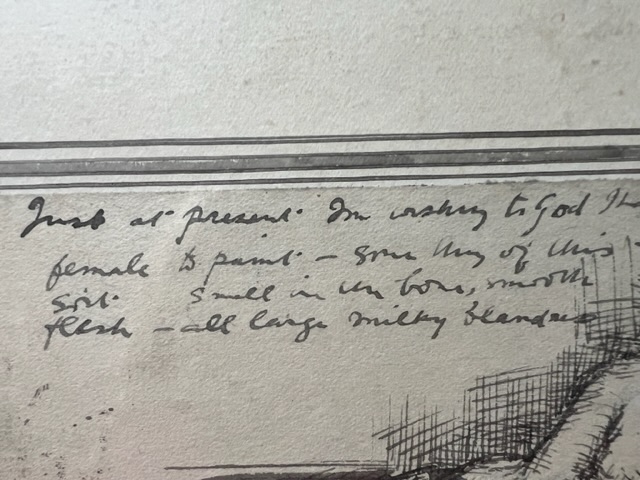 Just at present I'm wishing to God I ha
female to paint – something of this
sort. Small in the bone, smooth
flesh – all large milky blandness